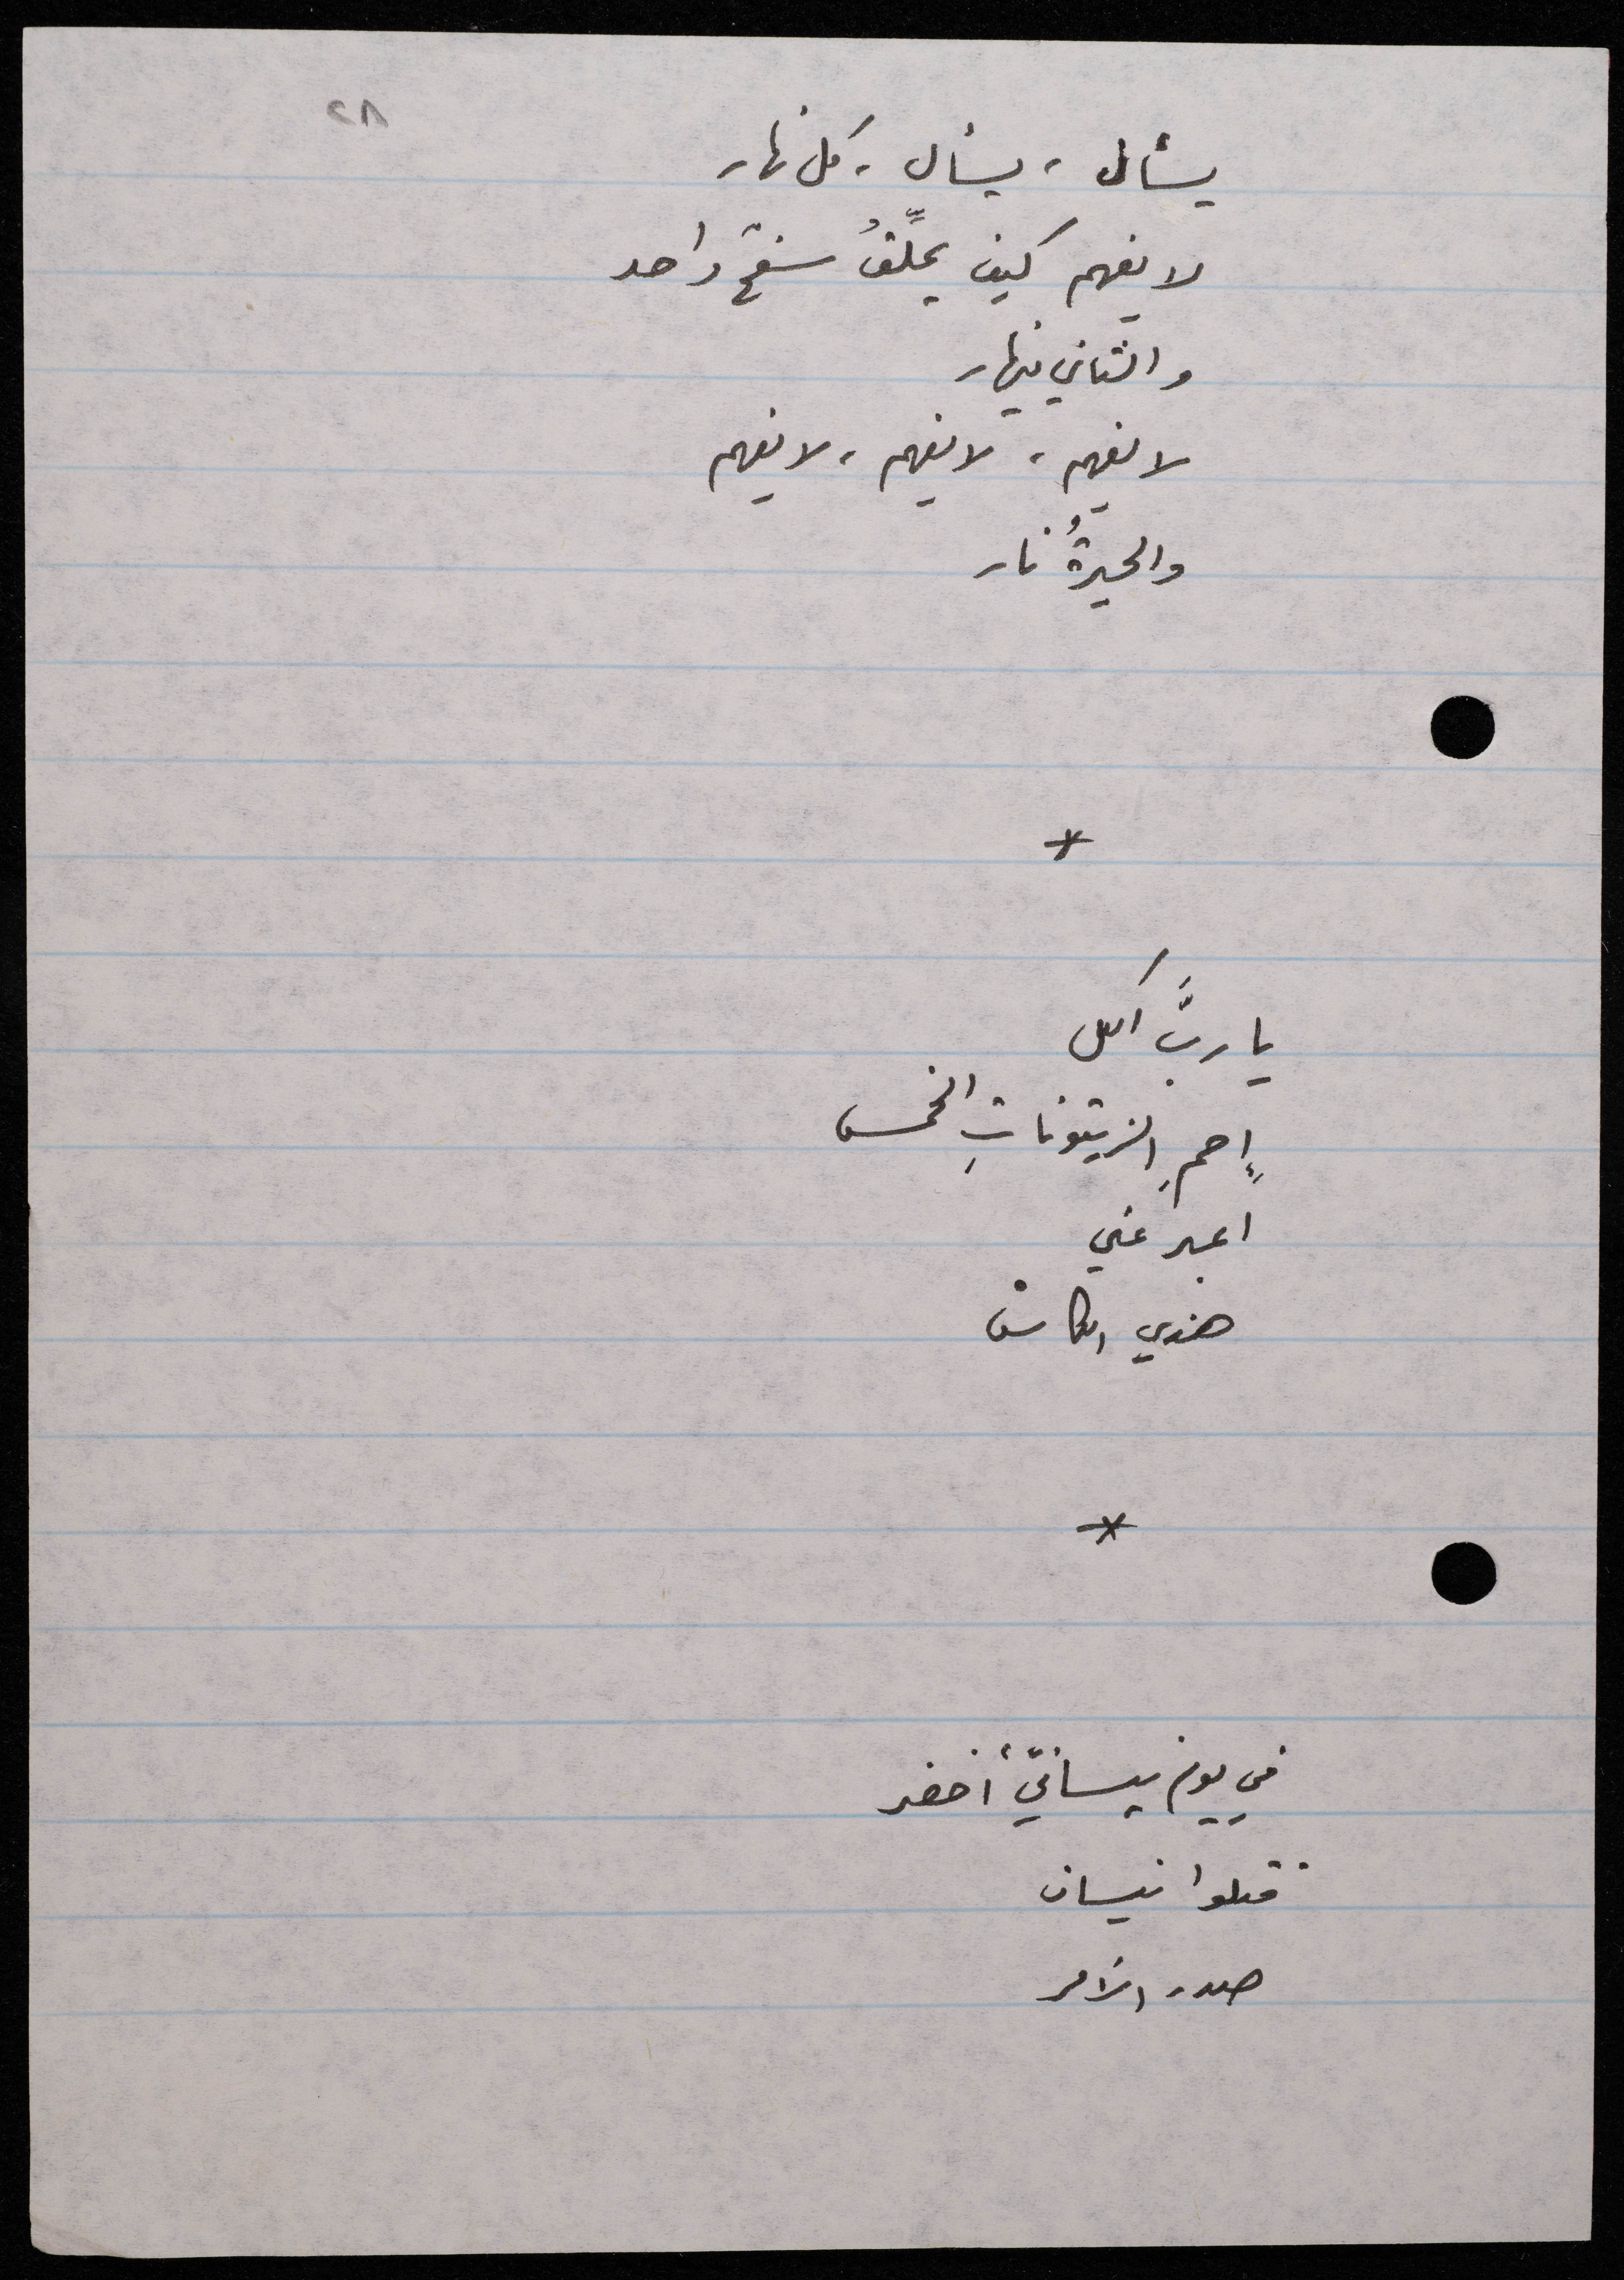 ٢٨
يسأل، يسأل، كل نهار
لا يفهم كيف يحلِّقُ سفحٌ واحد
والثاني ينهار
لا يفهم، لا يفهم، لا يفهم
والحيرةُ نار
*
يا ربَّ الكل
إحمِ الزيتوناتِ الخمس
اعبر عني
هذي الكاسْ
*
في يوم نيسانيّ أخضر
قتلوا نيسان
صدر الأمر